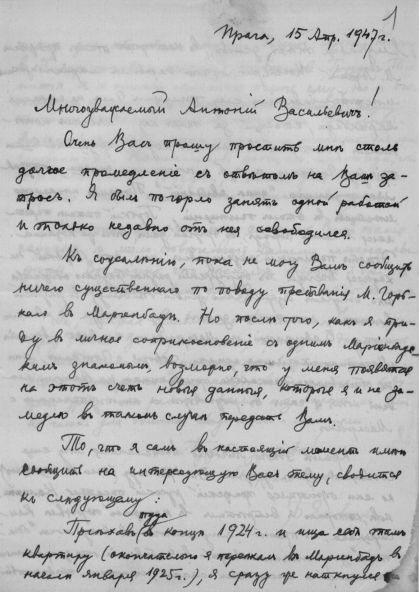 1
Прага, 15 Апр. 1947 г.
Многоуважаемый Антонiй Васильевичъ!
Очень Васъ прошу простить мнѣ столь
долгое промедленiе съ отвѣтомъ на Вашъ за-
просъ. Я былъ по горло занятъ одной работой
и только недавно отъ нея освободился.
Къ сожалѣнiю, пока не могу Вамъ сообщить
ничего существеннаго по поводу пребыванiя М. Горь-
каго въ Марiенбадѣ. Но послѣ того, какъ я при-
ду въ личное соприкосновенiе съ однимъ Марiенбад-
скимъ знакомымъ, возможно, что у меня появятся
на этотъ счетъ новыя данныя, которыя я и не за-
медлю въ такомъ случаѣ передать Вамъ.
То, что я самъ въ настоящiй моментъ имѣю
сообщить на интересующую Васъ тему, сводится
къ слѣдующему:
туда
Прiѣхавъ въ концѣ 1924 г. и ища себѣ тамъ
квартиру (окончательно я переѣхалъ въ Марiенбадъ въ
началѣ января 1925 г.), я сразу же наткнулся